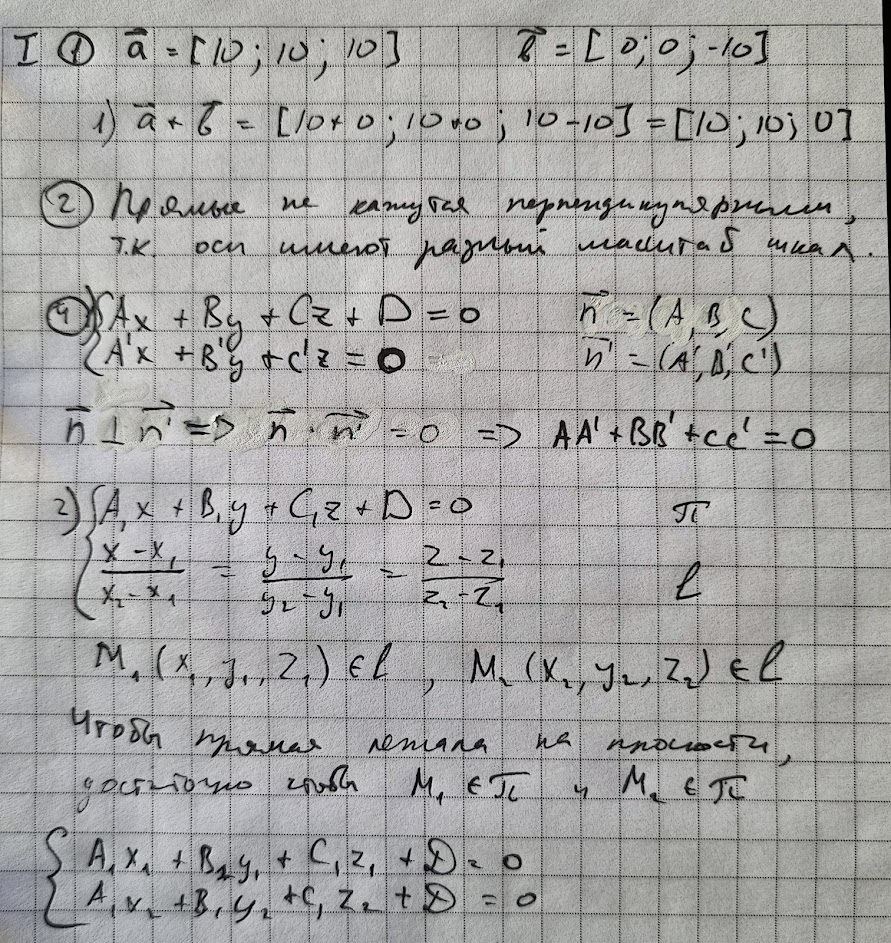 I ① a⃗ = [10; 10; 10] b⃗ = [0; 0; -10]
1) a⃗ + b⃗ = [10+0; 10+0; 10-10] = [10; 10; 0]
② Прямые не кажутся перпендикулярными,
т.к. оси имеют разный масштаб шкал.
④ { Ax + By + Cz + D = 0 n⃗ = (A, B, C)
A'x + B'y + C'z = 0 n⃗' = (A', B', C')
n⃗ ⊥ n⃗' => n⃗ · n⃗' = 0 => AA' + BB' + CC' = 0
2) { A₁x + B₁y + C₁z + D = 0 π
(x - x₁)/(x₂ - x₁) = (y - y₁)/(y₂ - y₁) = (z - z₁)/(z₂ - z₁) l
M₁(x₁, y₁, z₁) ∈ l, M₂(x₂, y₂, z₂) ∈ l
Чтобы прямая лежала на плоскости,
достаточно чтобы M₁ ∈ π и M₂ ∈ π
{ A₁x₁ + B₁y₁ + C₁z₁ + D = 0
A₁x₂ + B₁y₂ + C₁z₂ + D = 0